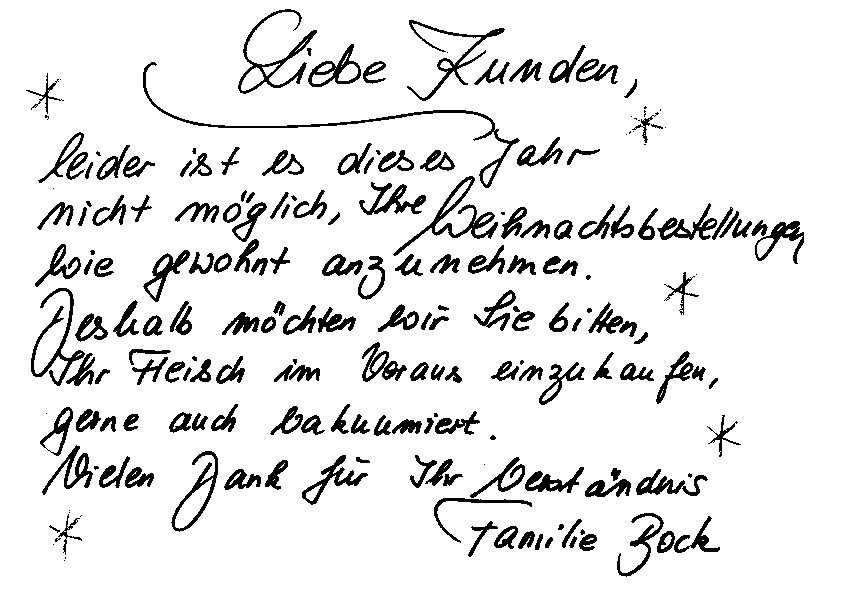 Liebe Kunden,
leider ist es dieses Jahr
nicht möglich, Ihre Weihnachtsbestellungen
wie gewohnt anzunehmen.
Deshalb möchten wir Sie bitten,
Ihr Fleisch im Voraus einzukaufen,
gerne auch vakuumiert.
Vielen Dank für Ihr Verständnis
Familie Bock